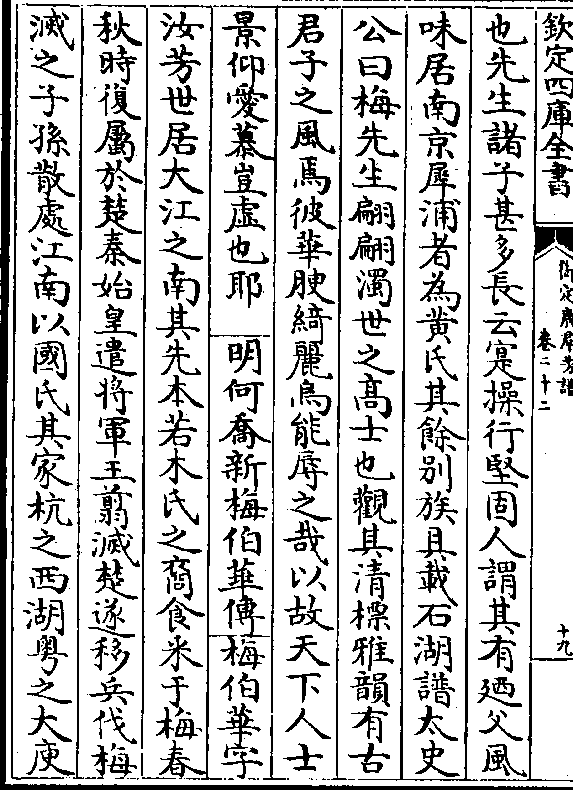 欽定四庫全書
御定廣羣芳譜
卷二十二
十九
也先生諸子甚多長云寔操行堅固人謂其有廼父風
味居南京犀浦者為黄氏其餘别族具載石湖譜太史
公曰梅先生翩翩濁世之髙士也觀其清標雅韻有古
君子之風焉彼華腴綺麗烏能辱之哉以故天下人士
景仰愛慕豈虛也耶　明何喬新梅伯華傳梅伯華字
汝芳世居大江之南其先本若木氏之裔食采于梅春
秋時復屬於楚秦始皇遣将軍王翦滅楚遂移兵伐梅
滅之子孫散處江南以國氏其家杭之西湖粤之大庾